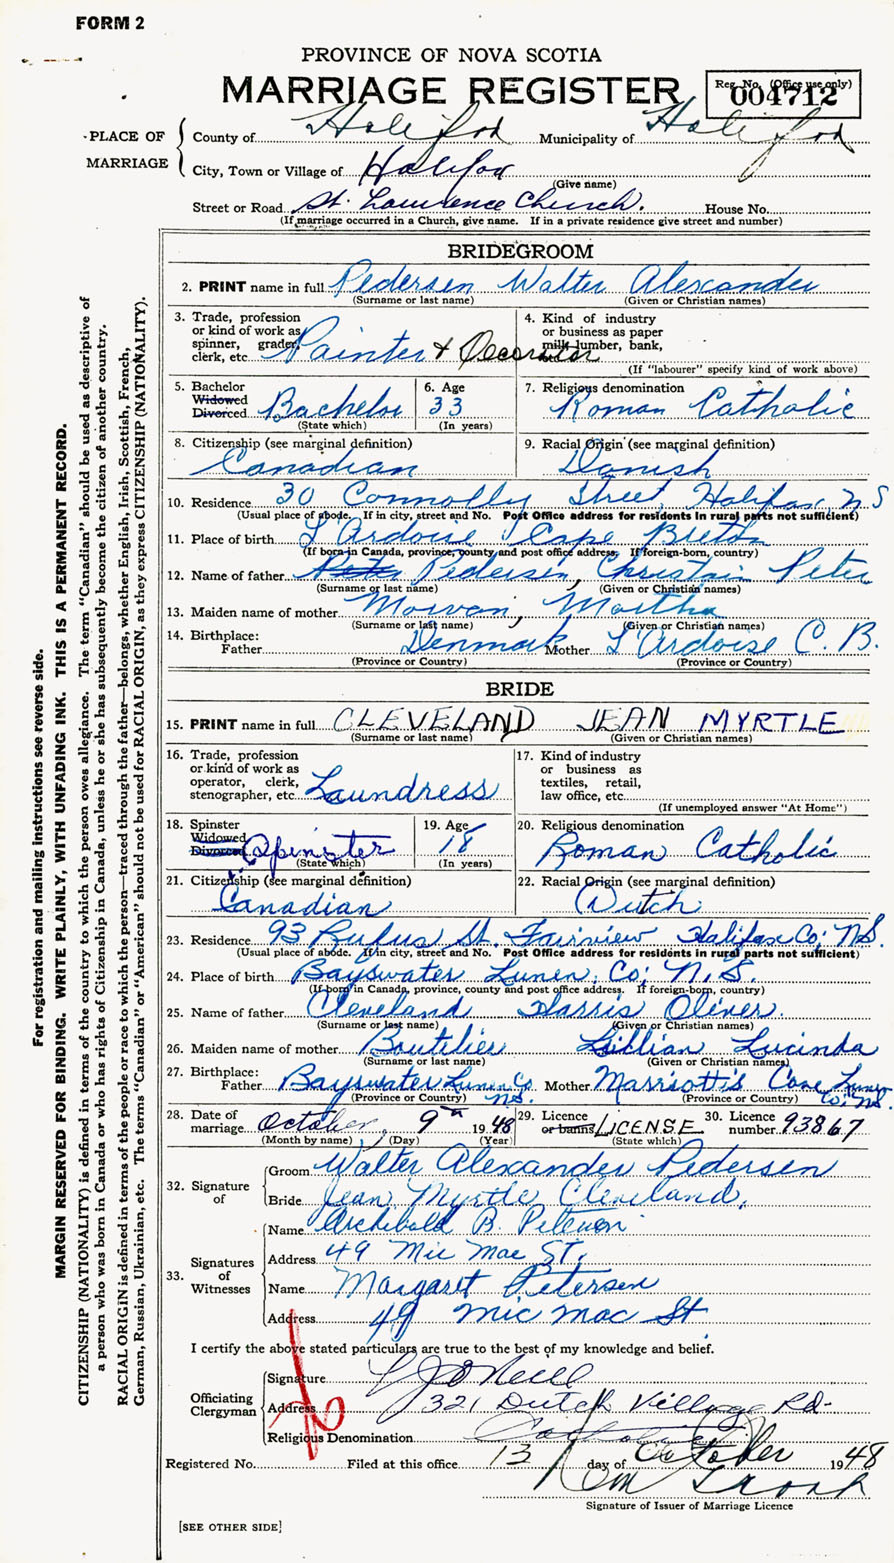 FORM 2
PROVINCE OF NOVA SCOTIA
MARRIAGE REGISTER
Reg. No. (Office use only)
004712
PLACE OF MARRIAGE
County of Halifax Municipality of Halifax
City, Town or Village of Halifax
(Give name)
Street or Road St. Lawrence Church. House No.
(If marriage occurred in a Church, give name. If in a private residence give street and number)
BRIDEGROOM
2. PRINT name in full Pedersen Walter Alexander
(Surname or last name) (Given or Christian names)
3. Trade, profession or kind of work as spinner, grader, clerk, etc. Painter & Decorator
4. Kind of industry or business as paper milk, lumber, bank,
(If "labourer" specify kind of work above)
5. Bachelor Widowed Divorced Bachelor
(State which)
6. Age 33
(In years)
7. Religious denomination Roman Catholic
8. Citizenship (see marginal definition) Canadian
9. Racial Origin (see marginal definition) Danish
10. Residence 30 Connolly Street, Halifax, N S
(Usual place of abode. If in city, street and No. Post Office address for residents in rural parts not sufficient)
11. Place of birth L'Ardoise Cape Breton
(If born in Canada, province, county and post office address. If foreign-born, country)
12. Name of father Peter Pedersen, Christain Peter
(Surname or last name) (Given or Christian names)
13. Maiden name of mother Morvan, Martha
(Surname or last name) (Given or Christian names)
14. Birthplace:
Father Denmark Mother L'Ardoise C. B.
(Province or Country) (Province or Country)
BRIDE
15. PRINT name in full CLEVELAND JEAN MYRTLE
(Surname or last name) (Given or Christian names)
16. Trade, profession or kind of work as operator, clerk, stenographer, etc. Laundress
17. Kind of industry or business as textiles, retail, law office, etc.
(If unemployed answer "At Home")
18. Spinster Widowed Divorced Spinster
(State which)
19. Age 18
(In years)
20. Religious denomination Roman Catholic
21. Citizenship (see marginal definition) Canadian
22. Racial Origin (see marginal definition) Dutch
23. Residence 93 Rufus St. Fairview Halifax Co; N.S.
(Usual place of abode. If in city, street and No. Post Office address for residents in rural parts not sufficient)
24. Place of birth Bayswater Lunen. Co; N.S.
(If born in Canada, province, county and post office address. If foreign-born, country)
25. Name of father Cleveland Harris Oliver.
(Surname or last name) (Given or Christian names)
26. Maiden name of mother Boutilier Lillian Lucinda
(Surname or last name) (Given or Christian names)
27. Birthplace:
Father Bayswater Lunen Co N.S. Mother Marriott's Cove Lunen Co; N.S.
(Province or Country) (Province or Country)
28. Date of marriage October, 9th 1948
(Month by name) (Day) (Year)
29. Licence or banns LICENSE
(State which)
30. Licence number 93867
32. Signature of
Groom Walter Alexander Pedersen
Bride Jean Myrtle Cleveland,
33. Signatures of Witnesses
Name Archibald B. Petersen
Address 49 Mic Mac St.
Name Margaret Petersen
Address 49 Mic Mac St
I certify the above stated particulars are true to the best of my knowledge and belief.
Officiating Clergyman
Signature O'Neill
Address 321 Dutch Village Rd-
Religious Denomination Catholic
Registered No. Filed at this office 13 day of October 1948
Signature of Issuer of Marriage Licence
[SEE OTHER SIDE]
For registration and mailing instructions see reverse side.
MARGIN RESERVED FOR BINDING. WRITE PLAINLY, WITH UNFADING INK. THIS IS A PERMANENT RECORD.
CITIZENSHIP (NATIONALITY) is defined in terms of the country to which the person owes allegiance. The term "Canadian" should be used as descriptive of
a person who was born in Canada or who has rights of Citizenship in Canada, unless he or she has subsequently become the citizen of another country.
RACIAL ORIGIN is defined in terms of the people or race to which the person—traced through the father—belongs, whether English, Irish, Scottish, French,
German, Russian, Ukrainian, etc. The terms "Canadian" or "American" should not be used for RACIAL ORIGIN, as they express CITIZENSHIP (NATIONALITY).